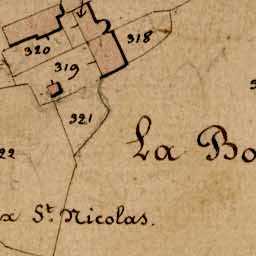 320
318
319
321
22
La Bo
x St. Nicolas.